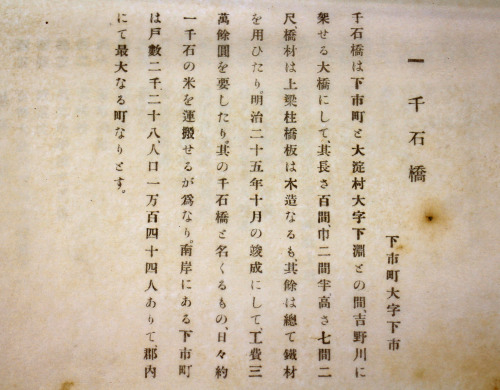 一 千石橋
下市町大字下市
千石橋は下市町と大淀村大字下淵との間、吉野川に
架せる大橋にして、其長さ百間、巾二間半高さ七間二
尺橋材は上梁柱橋板は木造なるも、其餘は總て鐵材
を用ひたり。明治二十五年十月の竣成にして、工費三
萬餘圓を要したり、其の千石橋と名くるもの、日々約
一千石の米を運搬せるが爲なり。南岸にある下市町
は戸數二千、二十八、人口一万百四十四人ありて、郡内
にて最大なる町なりとす。